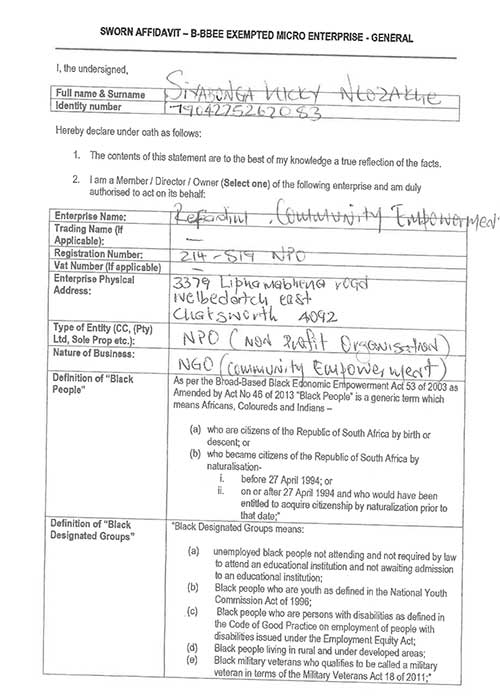 SWORN AFFIDAVIT – B-BBEE EXEMPTED MICRO ENTERPRISE - GENERAL
I, the undersigned,
Full name & Surname SIYABONGA NICKY
Identity number 7904275262083
Hereby declare under oath as follows:
1. The contents of this statement are to the best of my knowledge a true reflection of the facts.
2. I am a Member / Director / Owner (Select one) of the following enterprise and am duly
authorised to act on its behalf:
Enterprise Name: Community Empowerment
Trading Name (If
Applicable): —
Registration Number: 214-519 NPO
Vat Number (If applicable) —
Enterprise Physical 3379 Liphamabhena road
Address: welbedatch east
Chatsworth 4092
Type of Entity (CC, (Pty)
Ltd, Sole Prop etc.): NPO (Non Profit Organisation)
Nature of Business: NGO (Community Empowerment)
Definition of "Black
People"
As per the Broad-Based Black Economic Empowerment Act 53 of 2003 as
Amended by Act No 46 of 2013 "Black People" is a generic term which
means Africans, Coloureds and Indians –
(a) who are citizens of the Republic of South Africa by birth or
descent; or
(b) who became citizens of the Republic of South Africa by
naturalisation-
i. before 27 April 1994; or
ii. on or after 27 April 1994 and who would have been
entitled to acquire citizenship by naturalization prior to
that date;"
Definition of "Black
Designated Groups"
"Black Designated Groups means:
(a) unemployed black people not attending and not required by law
to attend an educational institution and not awaiting admission
to an educational institution;
(b) Black people who are youth as defined in the National Youth
Commission Act of 1996;
(c) Black people who are persons with disabilities as defined in
the Code of Good Practice on employment of people with
disabilities issued under the Employment Equity Act;
(d) Black people living in rural and under developed areas;
(e) Black military veterans who qualifies to be called a military
veteran in terms of the Military Veterans Act 18 of 2011;"